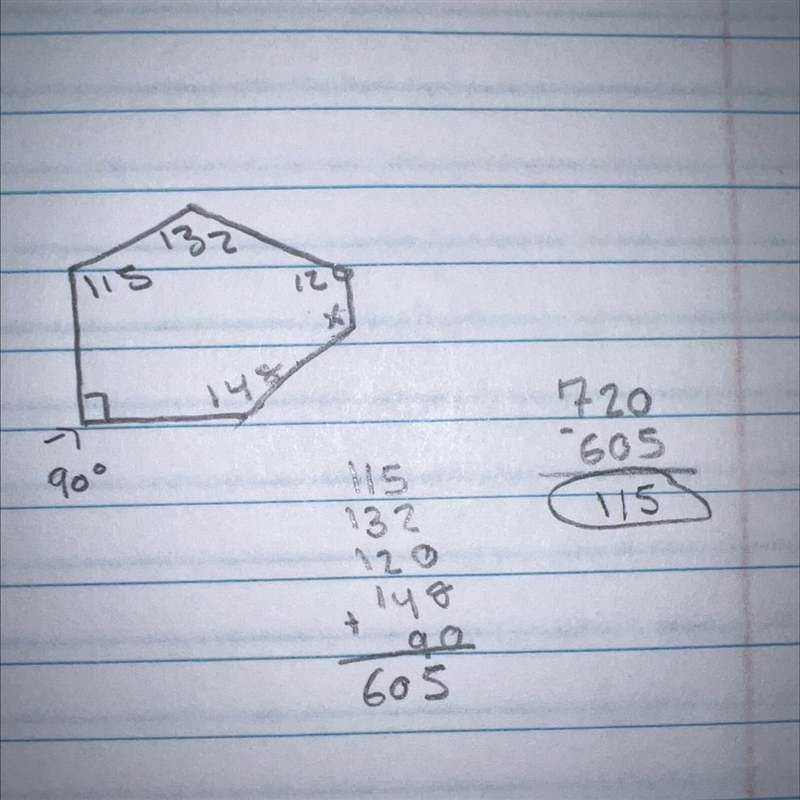 132
115
120
x
148
90°
115
132
120
148
+ 90
605
720
- 605
115